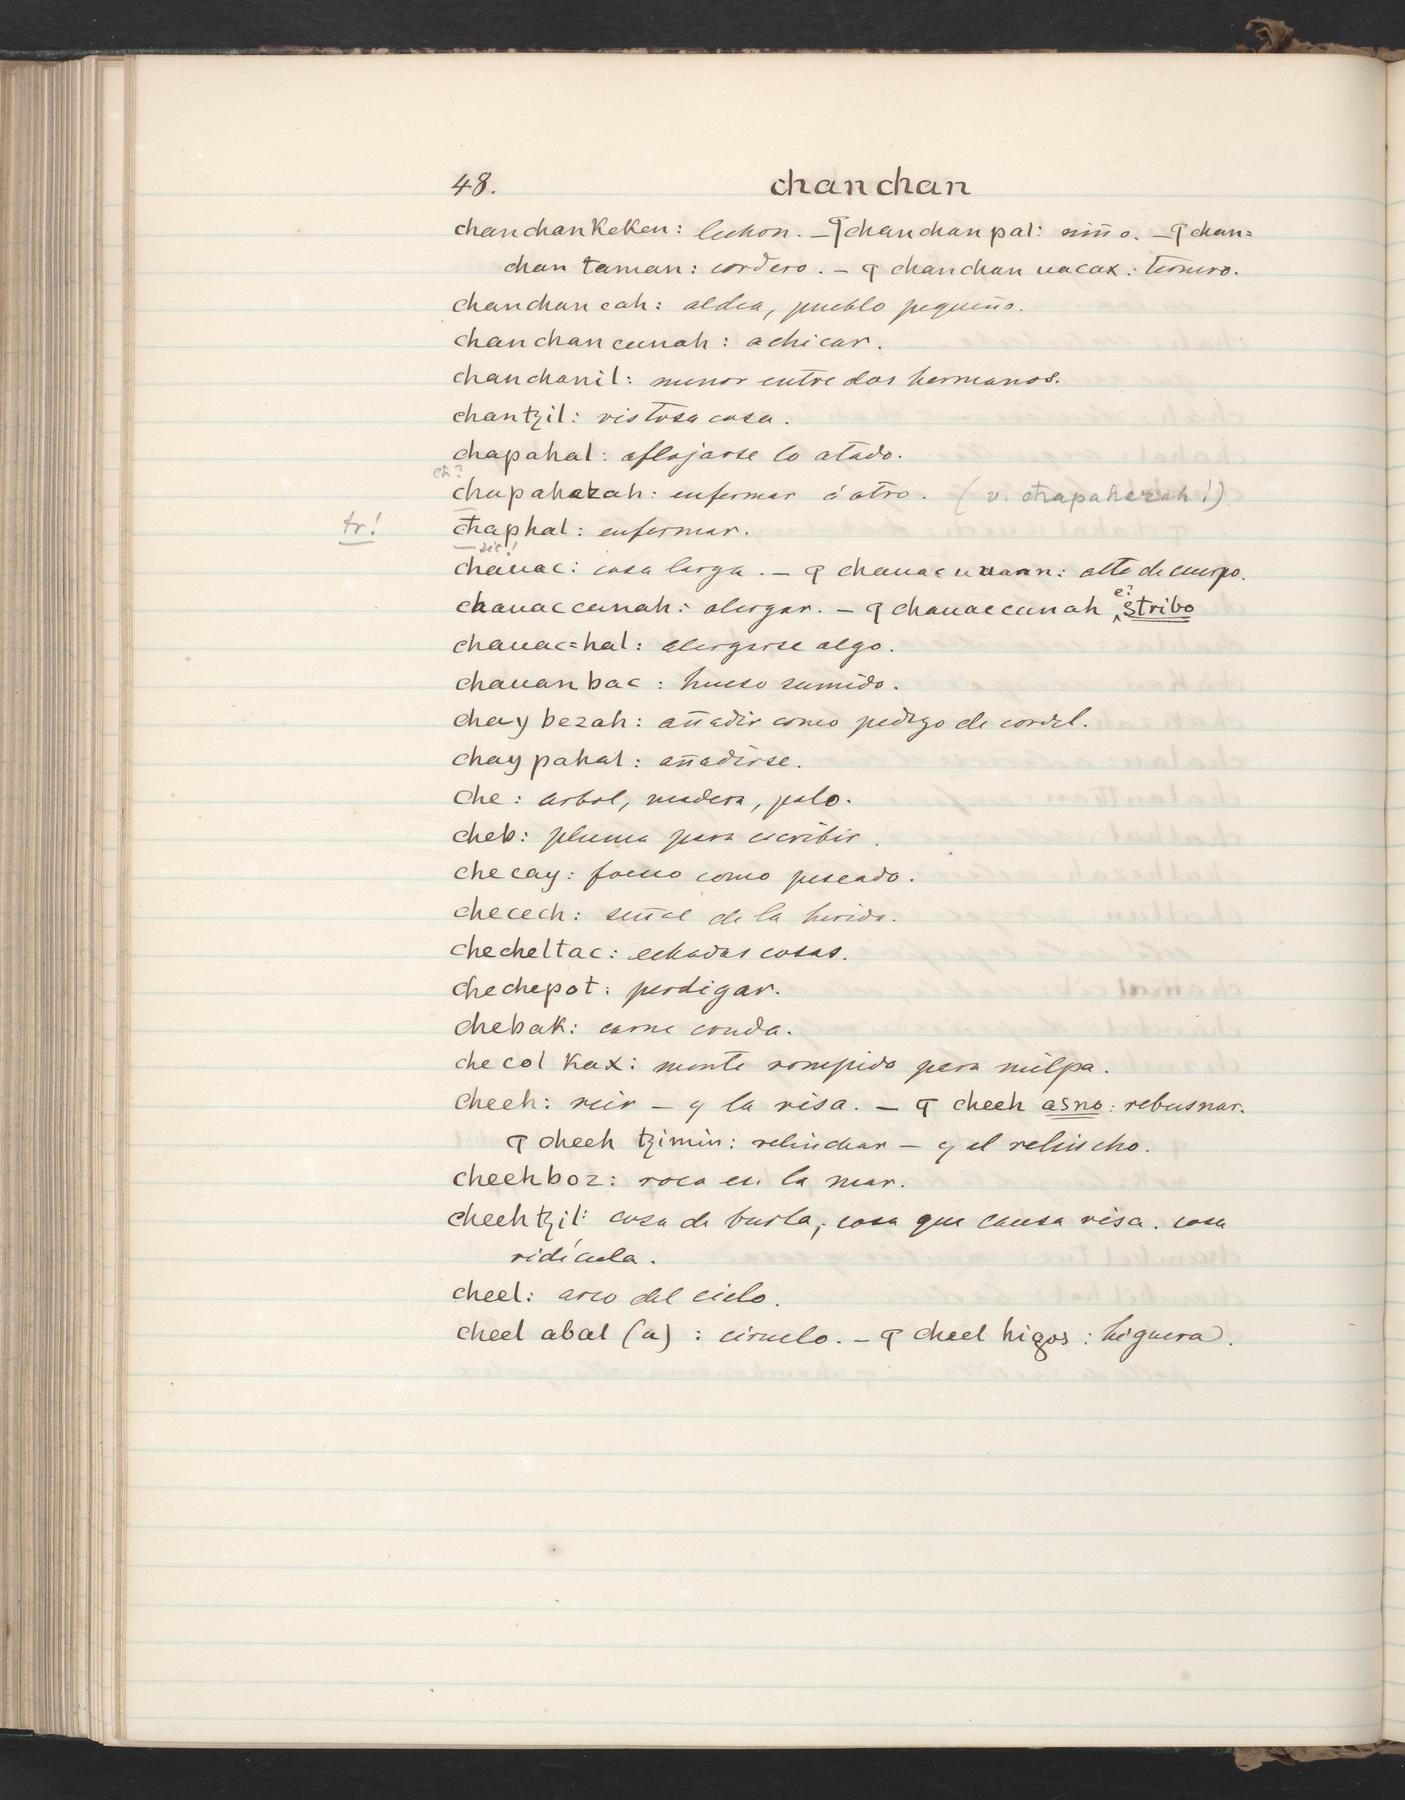 48. chanchan
chanchankeken: lechon. – ꟼ chanchan pal: niño. – ꟼ chan=
chan taman: cordero. – ꟼ chanchan uacax: ternero.
chanchan cah: aldea, pueblo pequeño.
chanchancunah: achicar.
chanchanil: menor entre dos hermanos.
chantzil: vistosa cosa.
chapahal: aflojarse lo atado.
cħ?
chapahezah: enfermar á otro. (v. cħapahezah!)
tr! cħaphal: enfermar.
sic!
chauac: cosa larga. – ꟼ chauac uinan: alto de cuerpo.
e?
chauaccunah: alargar. – ꟼ chauaccunah ‸stribo
chauac=hal: alargarse algo.
chauan bac: hueso sumido.
chay bezah: añadir como pedazo de cordel.
chay pahal: añadirse.
che: arbol, madera, palo.
cheb: pluma para escribir.
checay: fresco como pescado.
checech: señal de la herida.
checheltac: echadas cosas.
chechepot: perdigar.
chebak: carne cruda.
checol kax: monte rompido para milpa.
cheeh: reir – y la risa. – ꟼ cheeh asno: rebusnar.
ꟼ cheeh tzimin: relinchar – y el relincho.
cheehboz: roca en la mar.
cheehtzil: cosa de burla, cosa que causa risa. cosa
ridícula.
cheel: arco del cielo.
cheel abal (a): ciruelo. – ꟼ cheel higos: higuera.